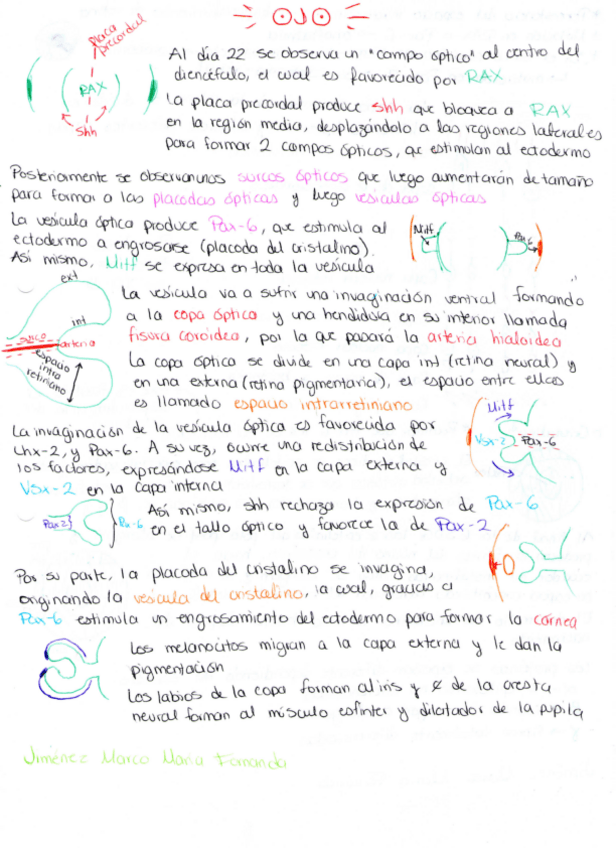 OJO
placa
precordal
RAX
Shh
Al día 22 se observa un "campo óptico" al centro del
diencéfalo, el cual es favorecido por RAX
La placa precordal produce Shh que bloquea a RAX
en la región media, desplazándolo a las regiones laterales
para formar 2 campos ópticos, que estimulan al ectodermo
Posteriormente se observan unos surcos ópticos que luego aumentarán de tamaño
para formar a las placodas ópticas y luego vesículas ópticas
La vesícula óptica produce Pax-6, que estimula al
ectodermo a engrosarse (placoda del cristalino).
Así mismo, Mitf se expresa en toda la vesícula
Mitf
Pax 6
ext
int
arteria
espacio
intra
retiniano
La vesícula va a sufrir una invaginación ventral formando
a la copa óptica y una hendidura en su interior llamada
fisura coroidea, por la que pasará la arteria hialoidea
La copa óptica se divide en una capa int (retina neural) y
en una externa (retina pigmentaria), el espacio entre ellas
es llamado espacio intrarretiniano
La invaginación de la vesícula óptica es favorecida por
Lhx-2, y Pax-6. A su vez, ocurre una redistribución de
los factores, expresándose Mitf en la capa externa y
Vsx-2 en la capa interna
Mitf
Vsx-2
Pax-6
Pax2
Pax-6
Así mismo, shh rechaza la expresión de Pax-6
en el tallo óptico y favorece la de Pax-2
Por su parte, la placoda del cristalino se invagina,
originando la vesícula del cristalino, la cual, gracias a
Pax-6 estimula un engrosamiento del ectodermo para formar la córnea
Los melanocitos migran a la capa externa y le dan la
pigmentación
Los labios de la copa forman al iris y ¢ de la cresta
neural forman al músculo esfínter y dilatador de la pupila
Jiménez Marco María Fernanda